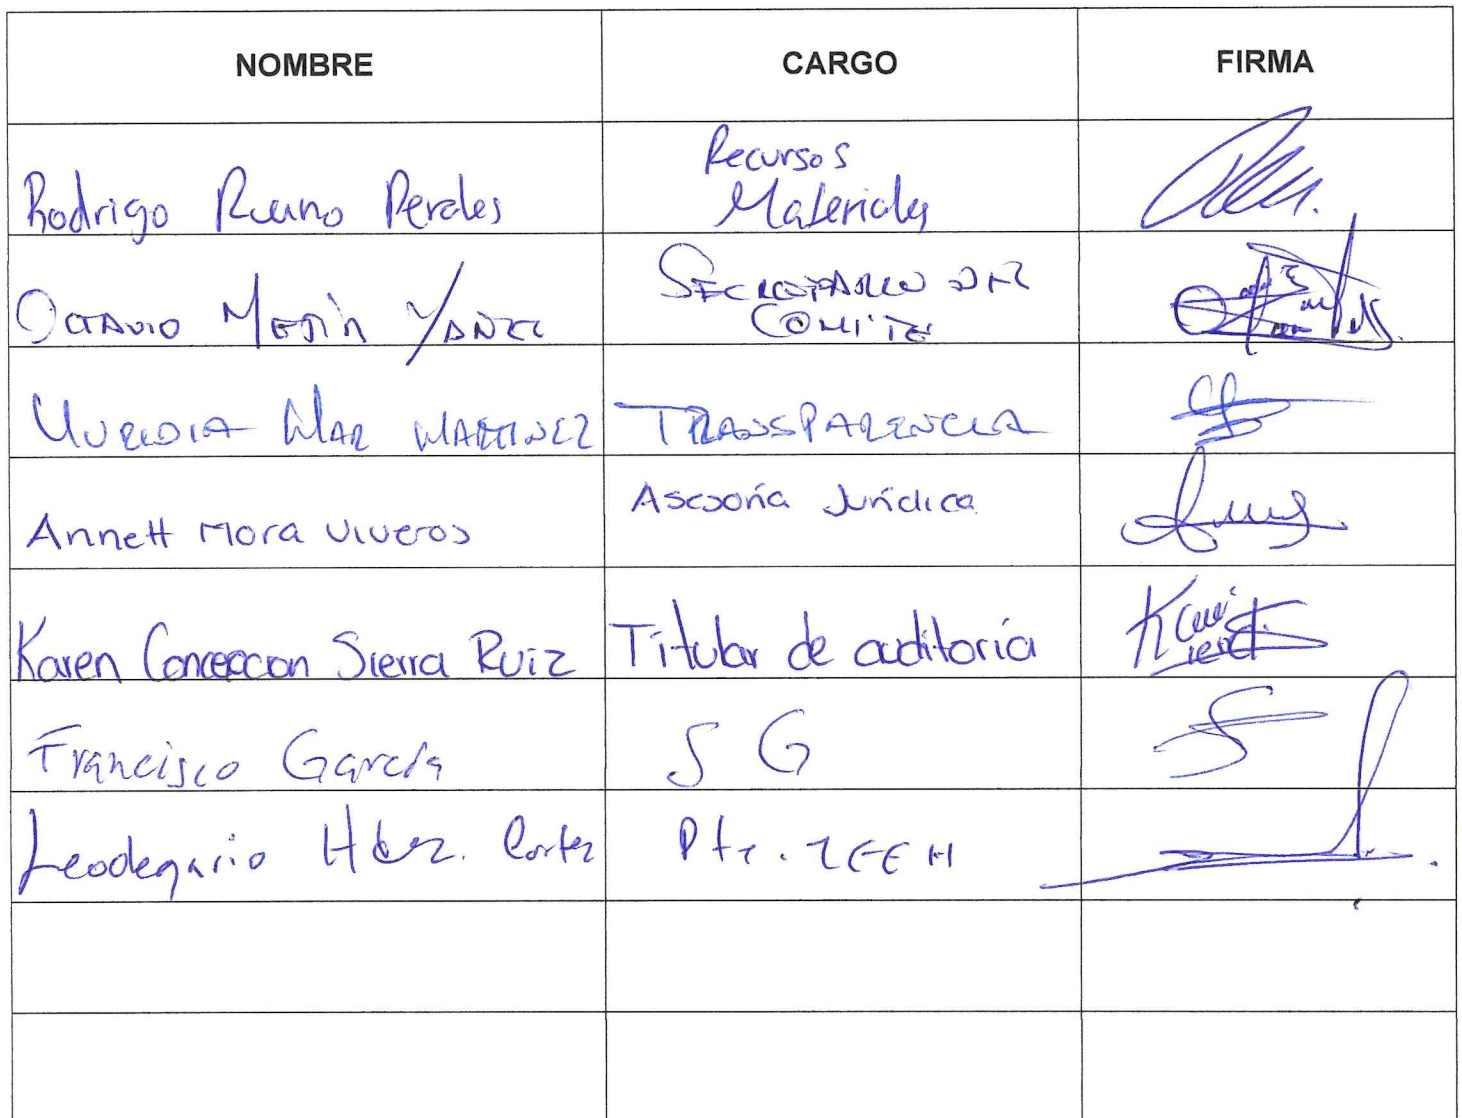 NOMBRE CARGO FIRMA
Rodrigo Perales Recursos
Materiales
OCTAVIO SECRETARIO DEL
COMITE
YURIDIA MAR MARTINEZ TRANSPARENCIA
Annett Mora Viveros Asesoría Jurídica
Karen Concepcion Sierra Ruiz Titular de auditoría
Francisco García S G
Leodegario Hdez. Cortez Pte. IEEH